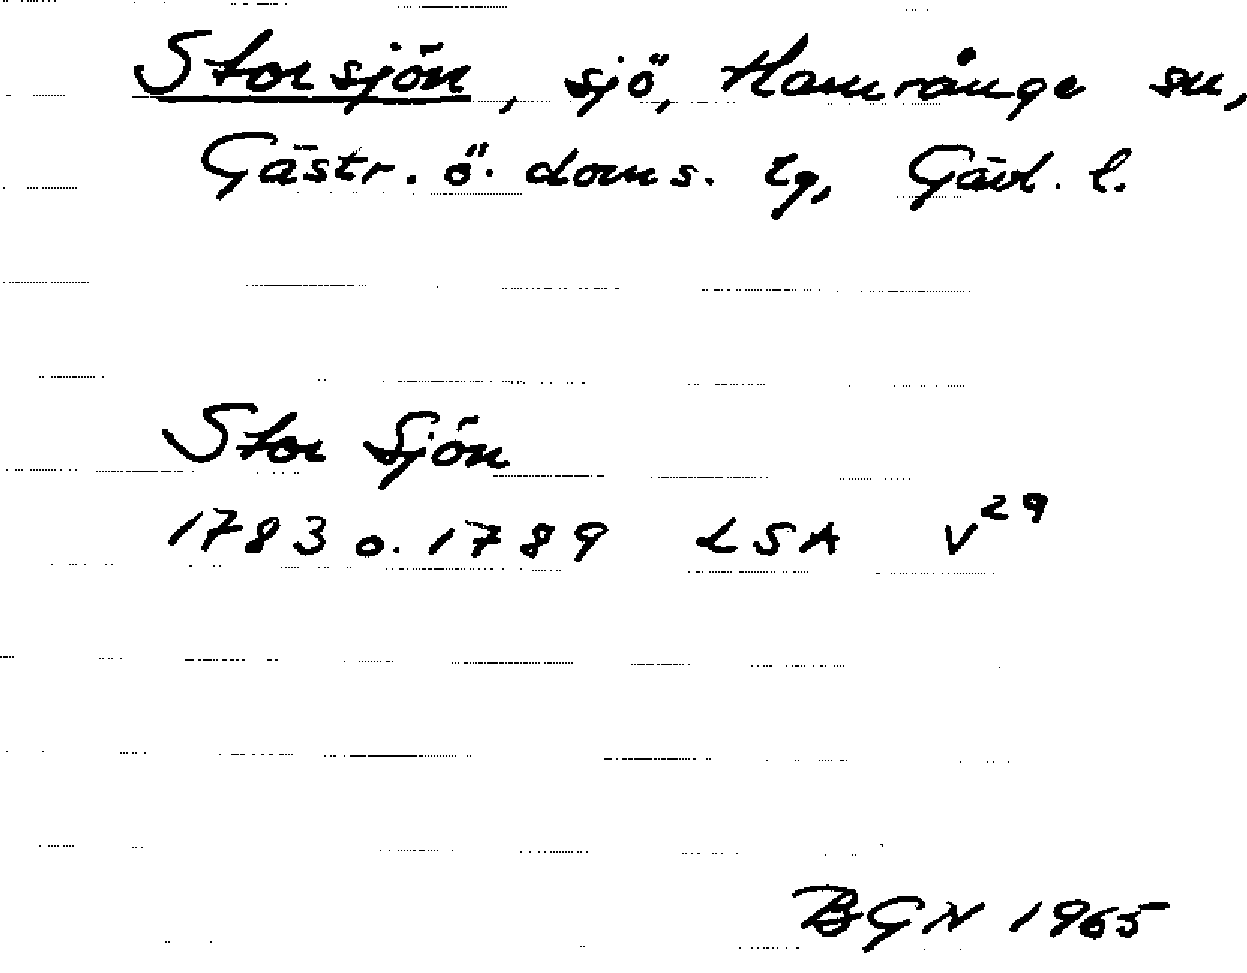 Storsjön, sjö, Hamrånge sn,
Gästr. ö. doms. tg, Gävl. l.
Stor Sjön
1783 o. 1789 LSA V29
BGN 1965